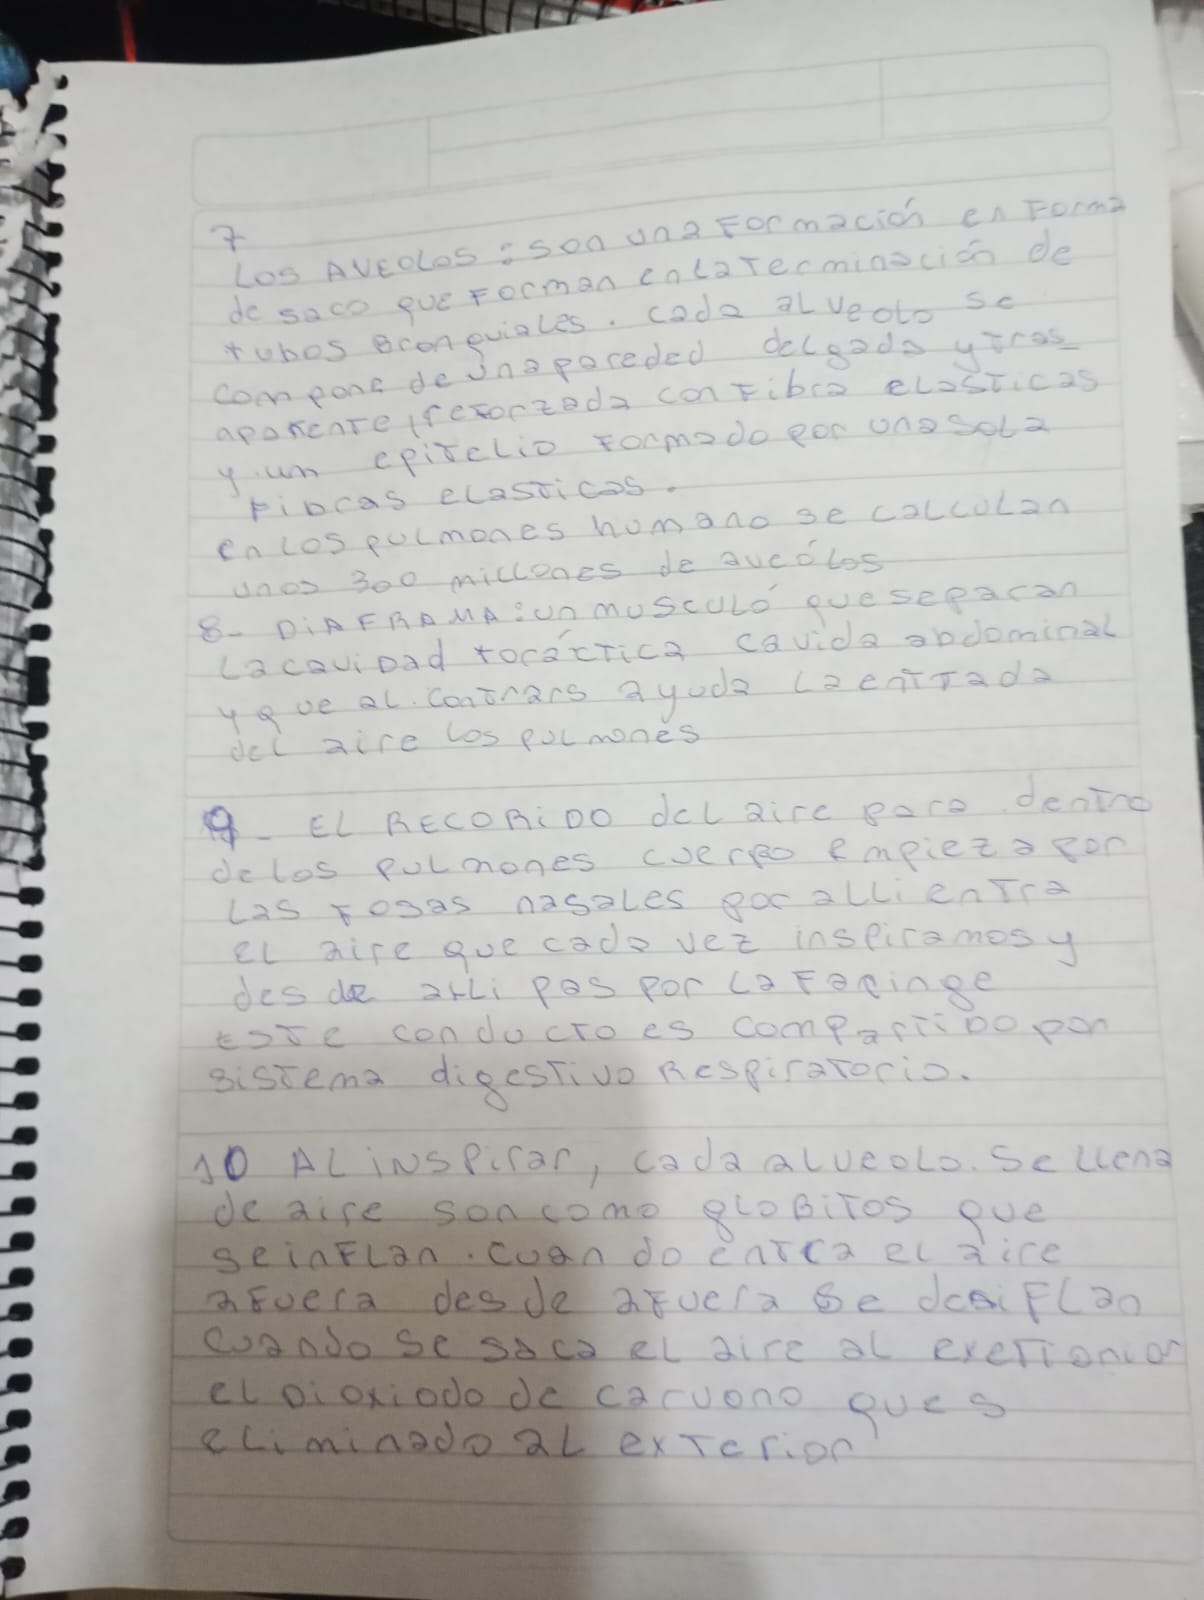 7
Los AVEOLOS: son una Formación en Forma
de saco que Forman en la Terminación de
tubos Bronquiales. cada alveolo se
compone de una pareded delgada y Tras_
aparente, reforzada con Fibra elasticas
y un epitelio Formado por una sola
Fibras elasticas.
en los pulmones humano se calculan
unos 300 millones de aveólos
8- DiAFRAMA: un musculó que separan
la cavidad toráctica cavida abdominal
y que al. contrars ayuda la entrada
del aire los pulmones
9- EL RECORiDO del aire para dentro
de los pulmones cuerpo empieza por
las Fosas nasales por alli entra
el aire que cada vez inspiramos y
desde alli pas por la Faringe
este conducto es compartido por
sistema digestivo Respiratorio.
10 AL iNspirar, cada alveolo. se llena
de aire son como globitos que
se inflan. cuando entra el aire
afuera desde afuera se desiFlan
cuando se saca el aire al exetionior
el Dioxiodo de carvono ques
eliminado al exterior